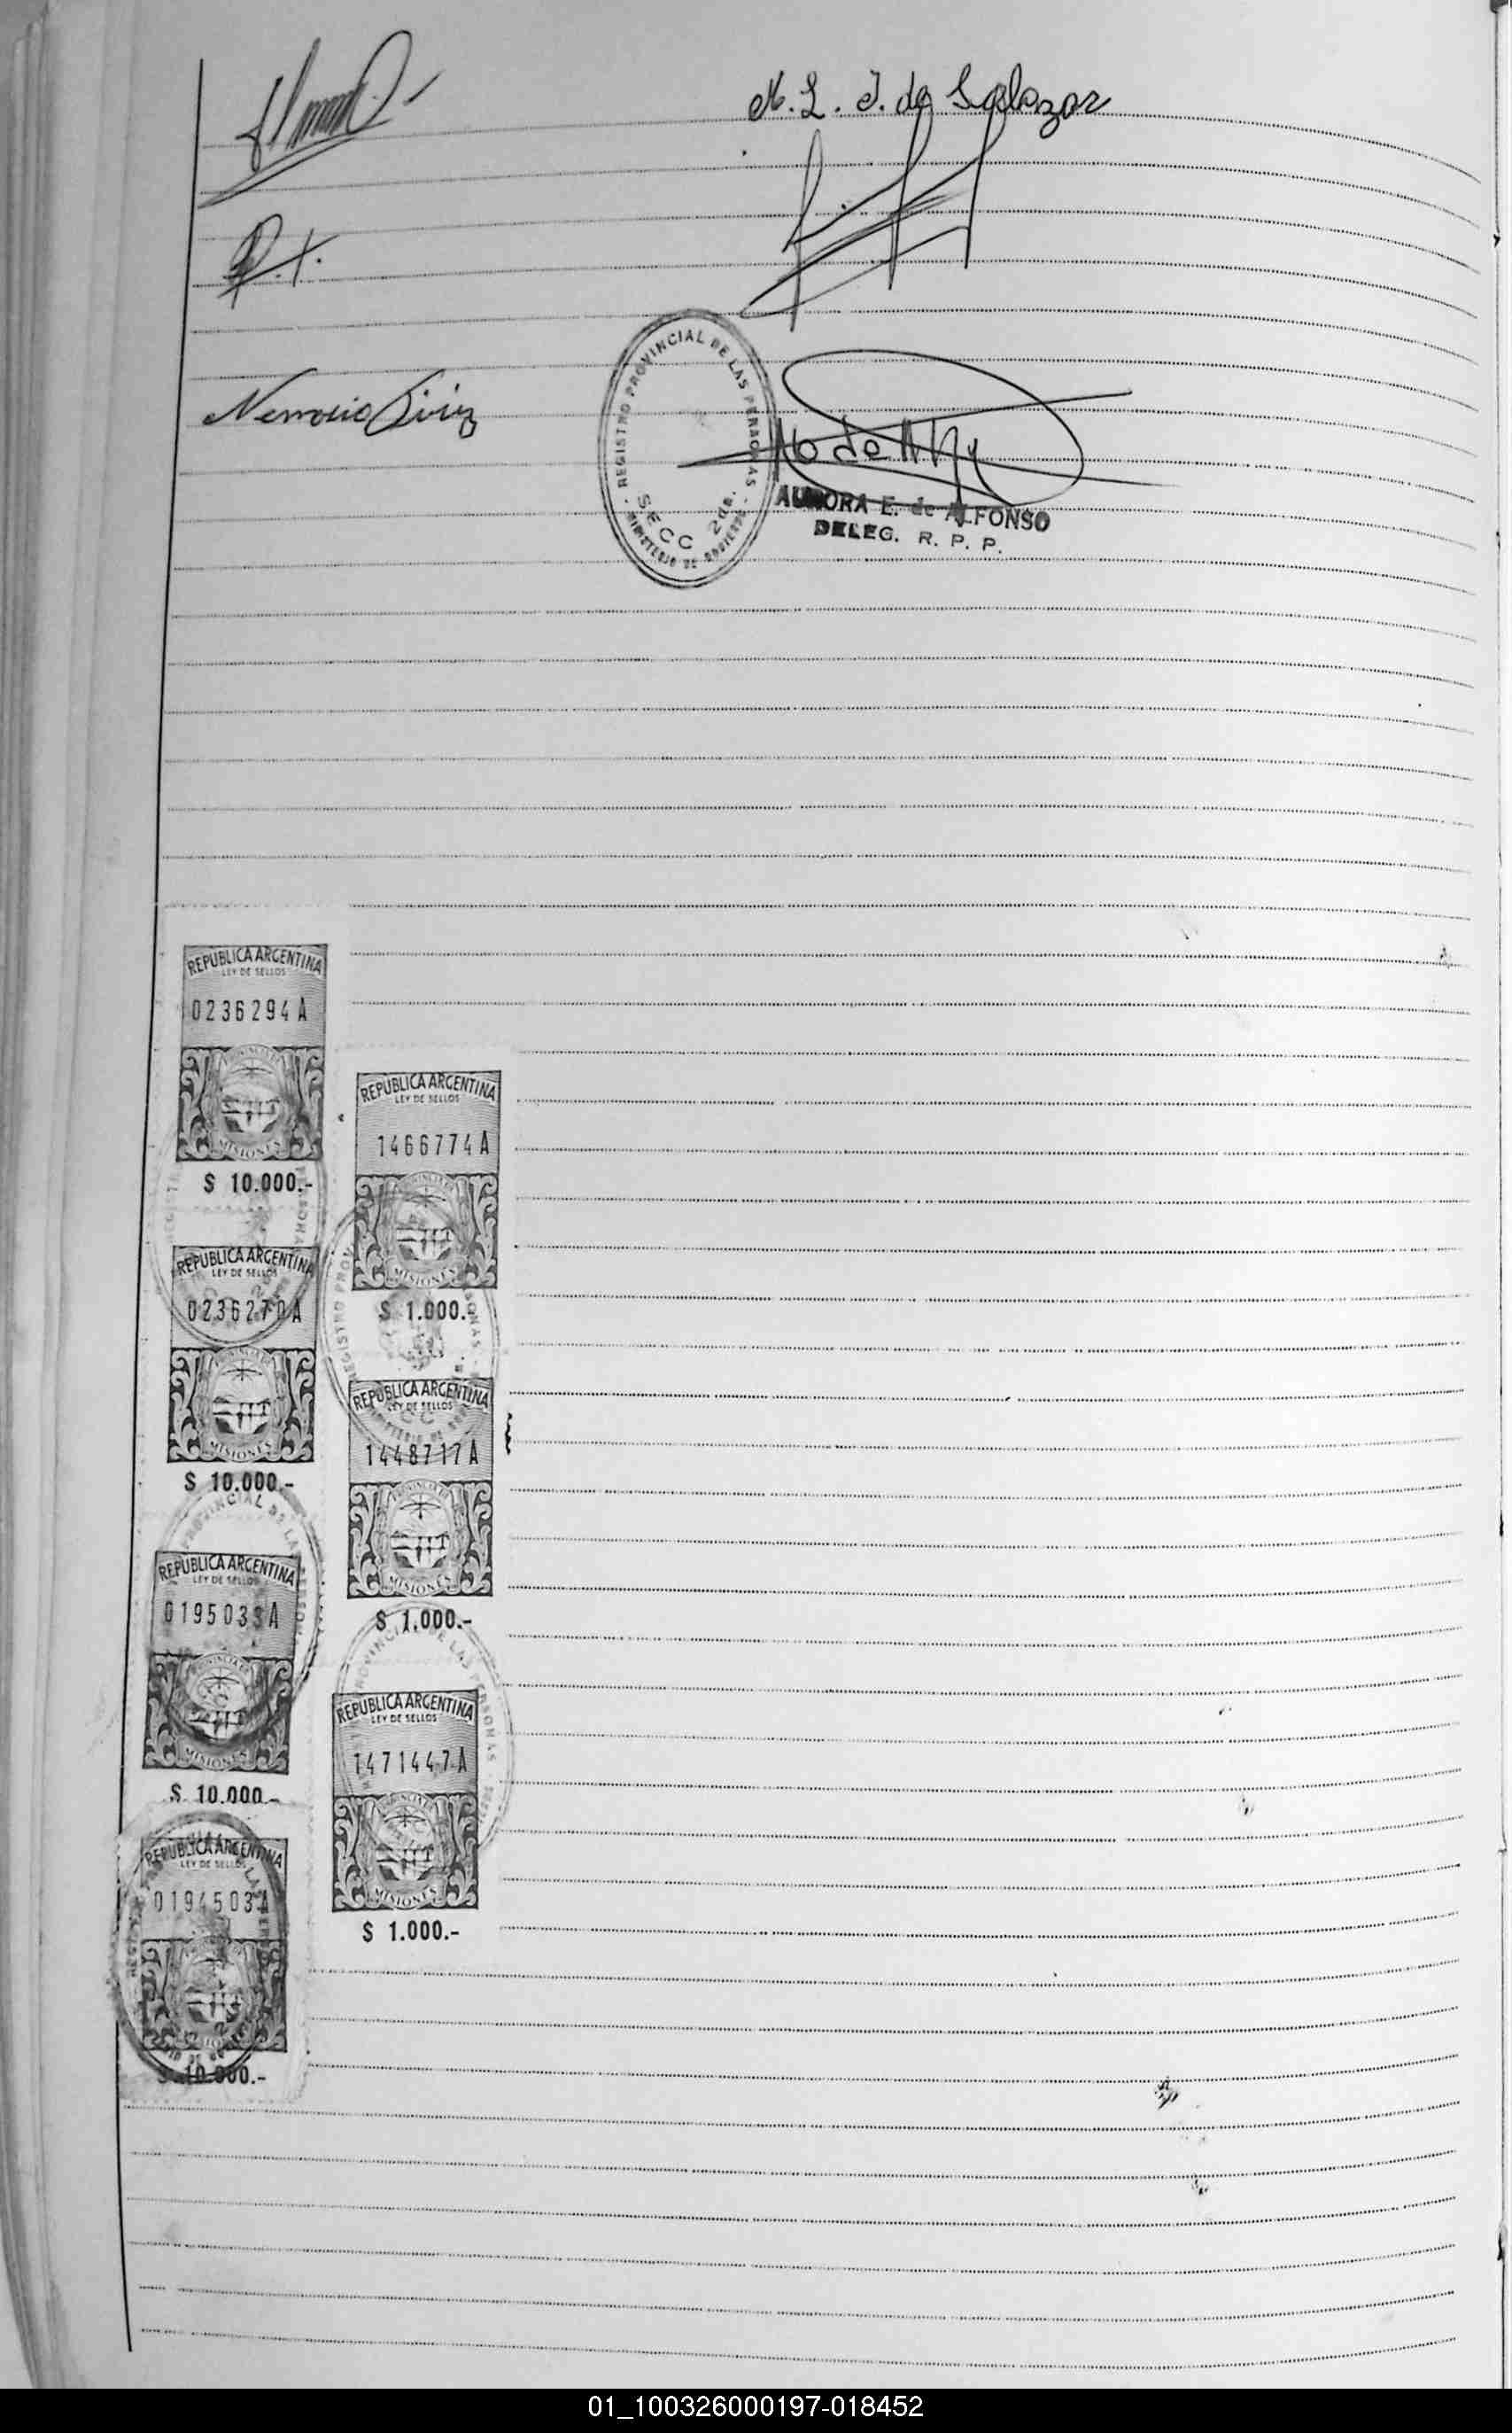 M. L. J. de Salazar
P.
REGISTRO PROVINCIAL DE LAS PERSONAS
SECC 2da.
MINISTERIO DE GOBIERNO
AURORA E. de ALFONSO
DELEG. R. P. P.
REPUBLICA ARGENTINA
LEY DE SELLOS
0236294 A
MISIONES
$ 10.000.-
REPUBLICA ARGENTINA
LEY DE SELLOS
0236270 A
MISIONES
$ 10.000.-
REPUBLICA ARGENTINA
LEY DE SELLOS
0195033 A
MISIONES
$ 10.000.-
REPUBLICA ARGENTINA
LEY DE SELLOS
0194503 A
$ 10.000.-
REPUBLICA ARGENTINA
LEY DE SELLOS
1466774 A
MISIONES
$ 1.000.-
REPUBLICA ARGENTINA
LEY DE SELLOS
1448717 A
MISIONES
$ 1.000.-
REPUBLICA ARGENTINA
LEY DE SELLOS
1471447 A
MISIONES
$ 1.000.-
01_100326000197-018452